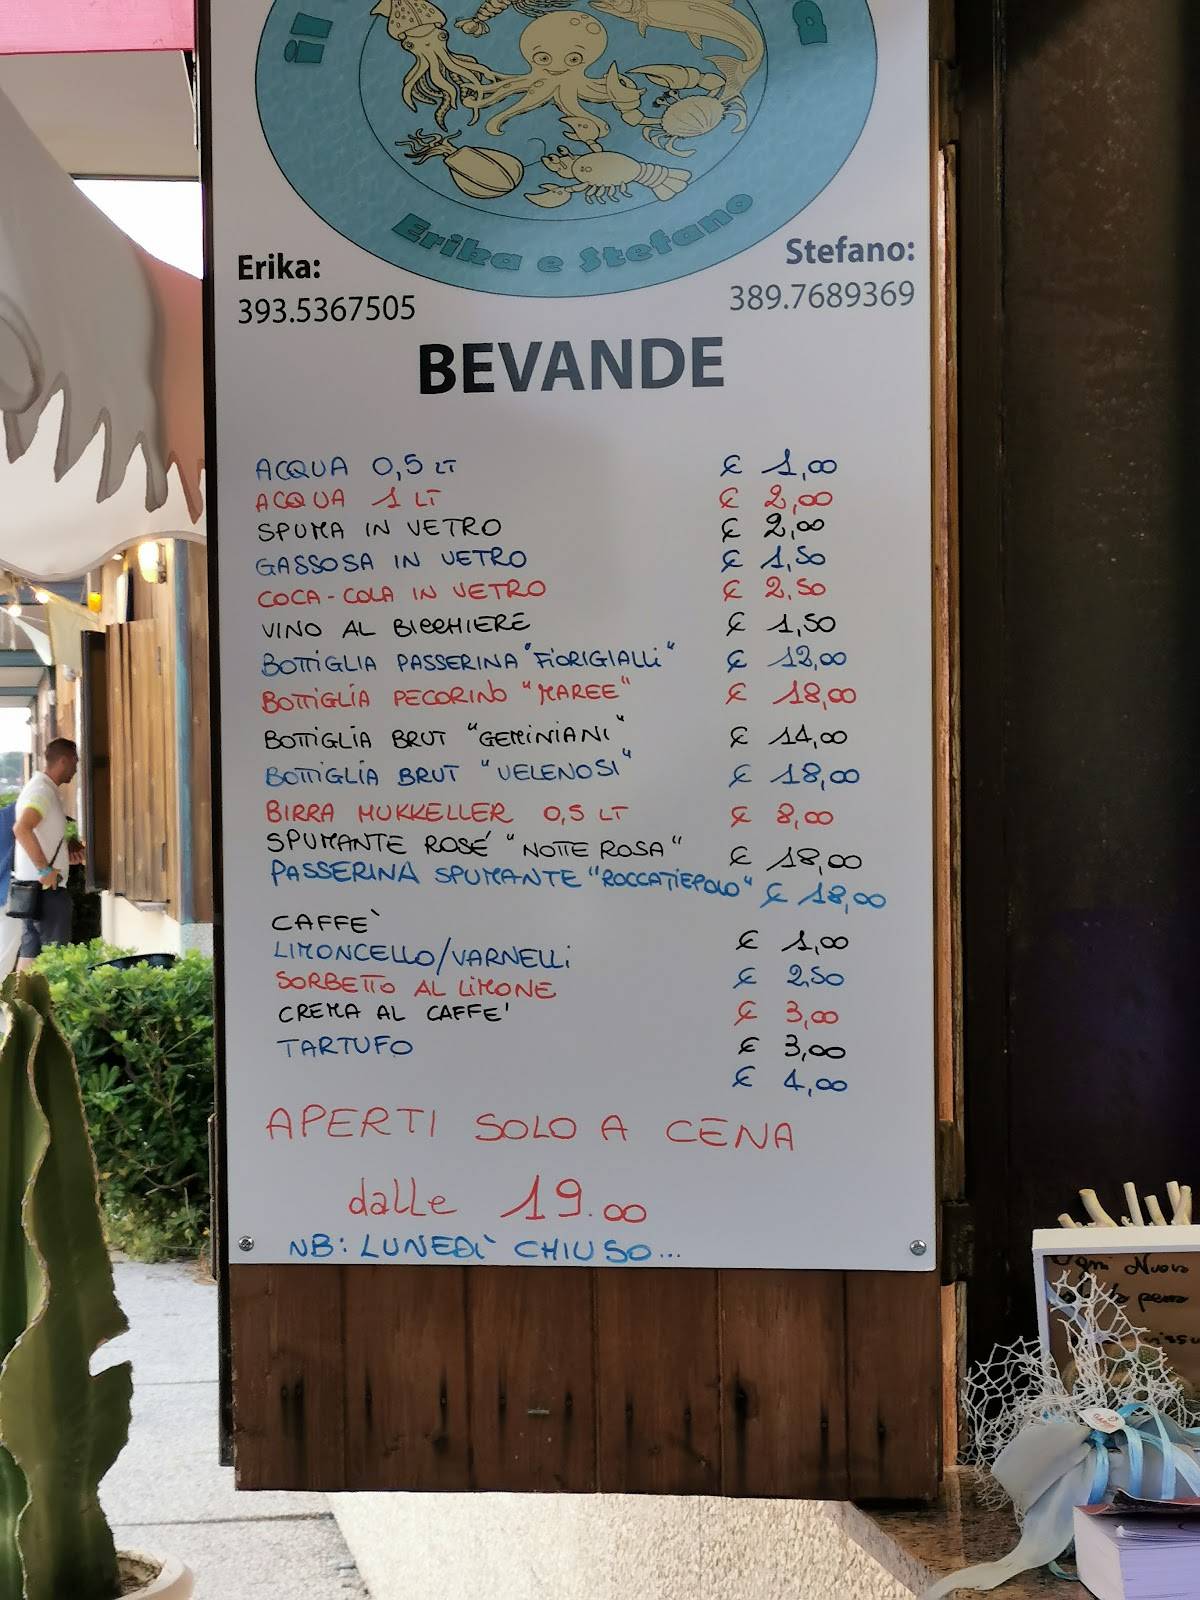 il
a
Erika e Stefano
Erika:
393.5367505
Stefano:
389.7689369
BEVANDE
ACQUA 0,5 LT € 1,00
ACQUA 1 LT € 2,00
SPUMA IN VETRO € 2,00
GASSOSA IN VETRO € 1,50
COCA-COLA IN VETRO € 2,50
VINO AL BICCHIERE € 1,50
BOTTIGLIA PASSERINA "FIORIGIALLI" € 12,00
BOTTIGLIA PECORINO "MAREE" € 18,00
BOTTIGLIA BRUT "GEMINIANI" € 14,00
BOTTIGLIA BRUT "VELENOSI" € 18,00
BIRRA MUKKELLER 0,5 LT € 8,00
SPUMANTE ROSÉ "NOTTE ROSA" € 18,00
PASSERINA SPUMANTE "ROCCATIEPOLO" € 18,00
CAFFE' € 1,00
LIMONCELLO/VARNELLI € 2,50
SORBETTO AL LIMONE € 3,00
CREMA AL CAFFE' € 3,00
TARTUFO € 4,00
APERTI SOLO A CENA
dalle 19.00
NB: LUNEDÌ CHIUSO...
Ogni Nuovo